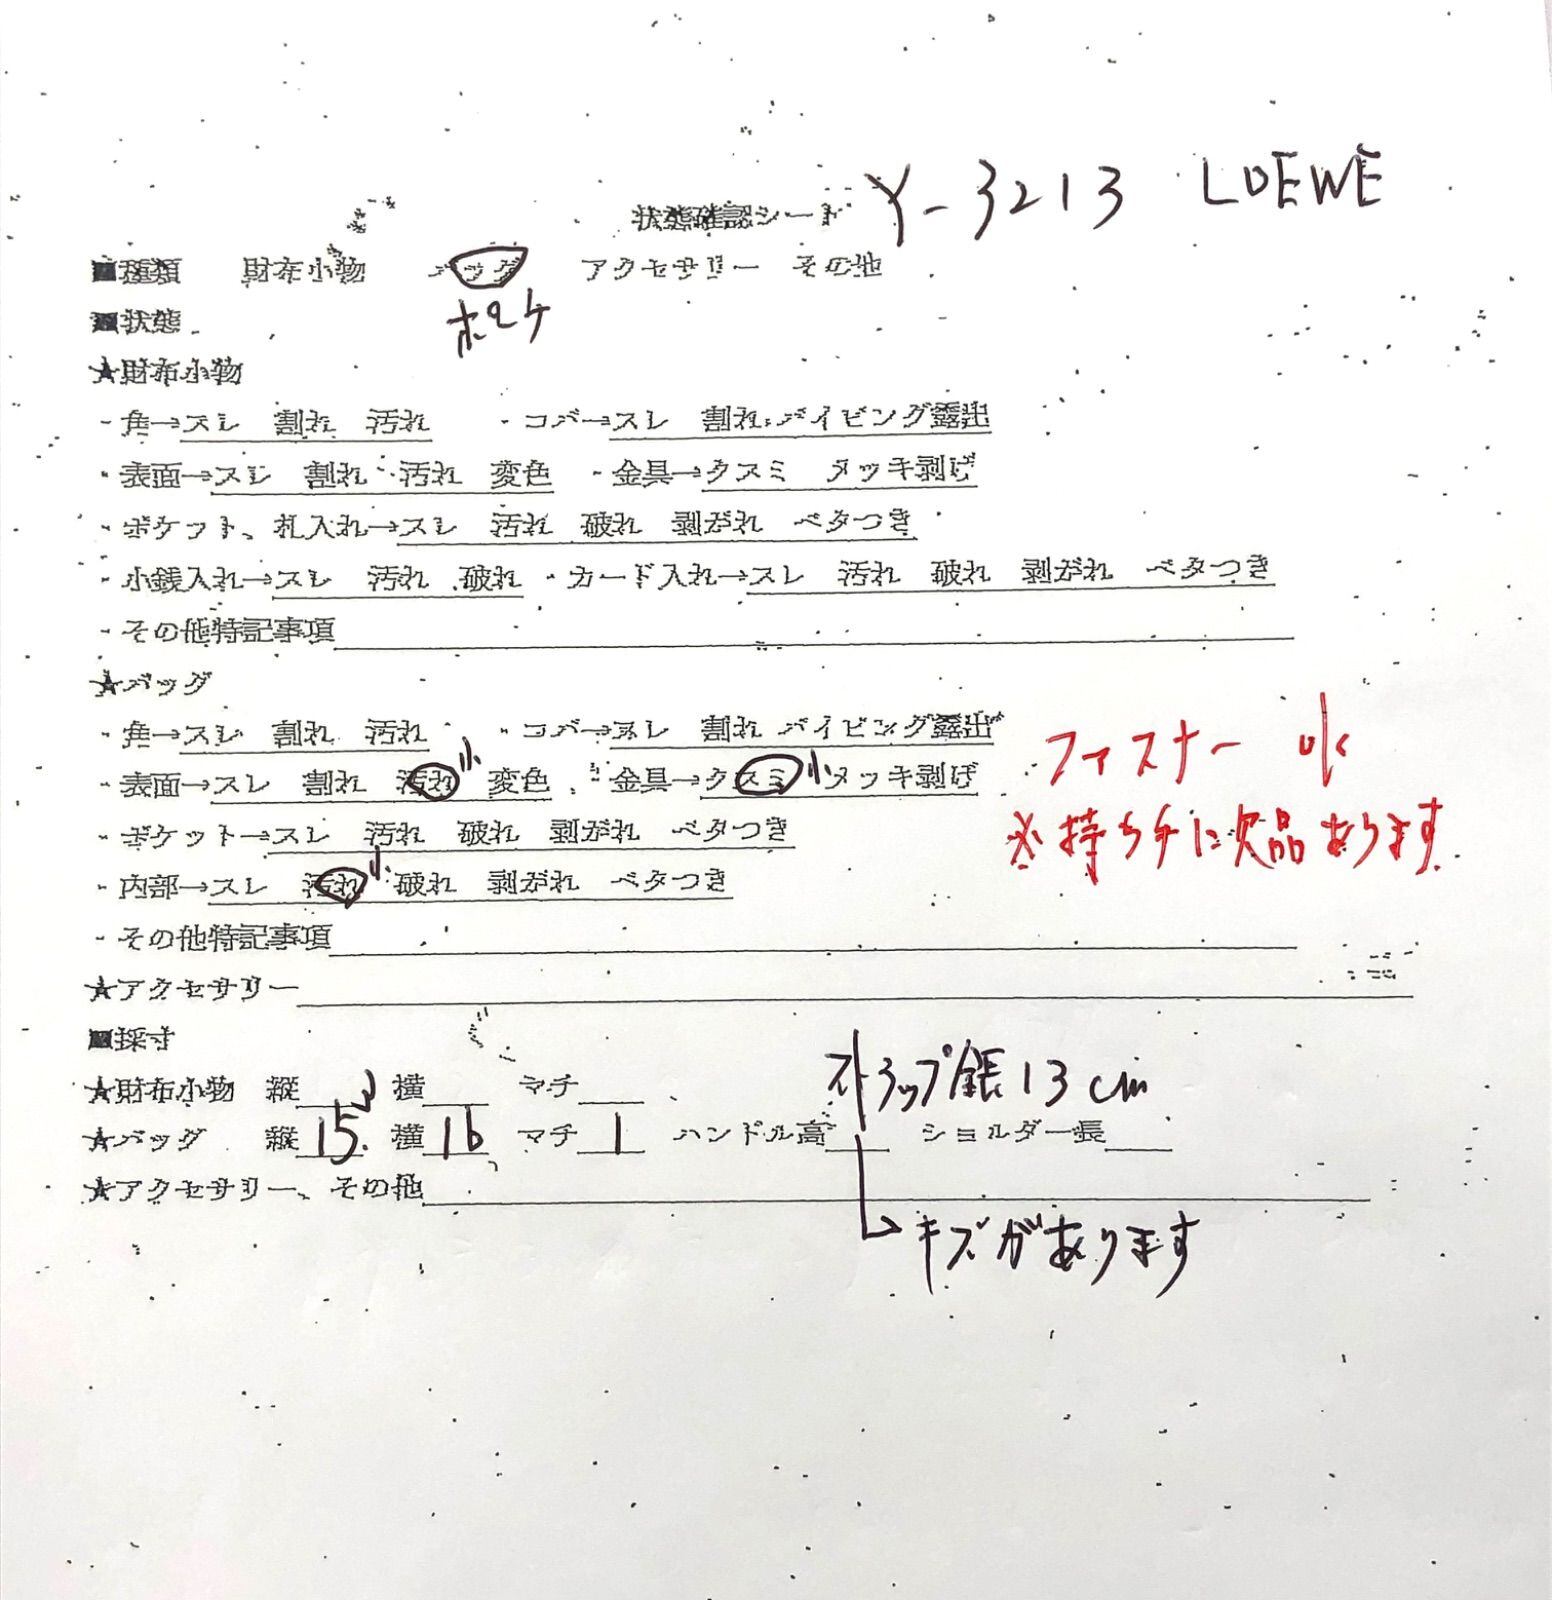 状態確認シート Y-3213 LOEWE
■種類 財布小物 バッグ アクセサリー その他
■状態
★財布小物
・角→スレ 割れ 汚れ ・コバ→スレ 割れ パイピング露出
・表面→スレ 割れ 汚れ 変色 ・金具→クスミ メッキ剥げ
・ポケット、札入れ→スレ 汚れ 破れ 剥がれ ベタつき
・小銭入れ→スレ 汚れ 破れ ・カード入れ→スレ 汚れ 破れ 剥がれ ベタつき
・その他特記事項
★バッグ
・角→スレ 割れ 汚れ ・コバ→スレ 割れ パイピング露出
ファスナー ok
・表面→スレ 割れ 汚れ 小 変色 ・金具→クスミ 小 メッキ剥げ
・ポケット→スレ 汚れ 破れ 剥がれ ベタつき
※持ち手に欠品あります
・内部→スレ 汚れ 小 破れ 剥がれ ベタつき
・その他特記事項
★アクセサリー
■採寸
ストラップ 長 13cm
★財布小物 縦 横 マチ
★バッグ 縦 15 横 16 マチ 1 ハンドル高 ショルダー長
★アクセサリー、その他
→キズがあります